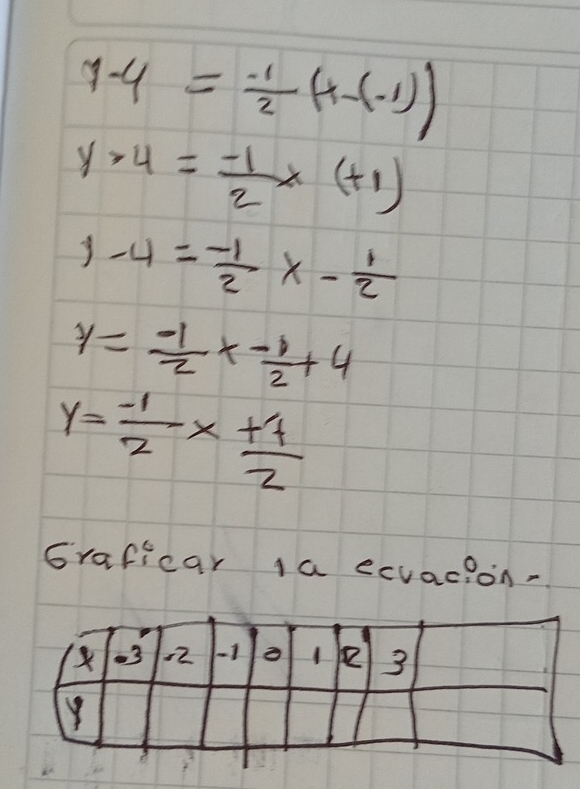 y-4 = -1/2 (x-(-1))
y-4 = -1/2 x (+1)
y-4 = -1/2 x - 1/2
y = -1/2 x -1/2 + 4
y = -1/2 x +7/2
Graficar la ecuación-
x -3 -2 -1 0 1 2 3
y